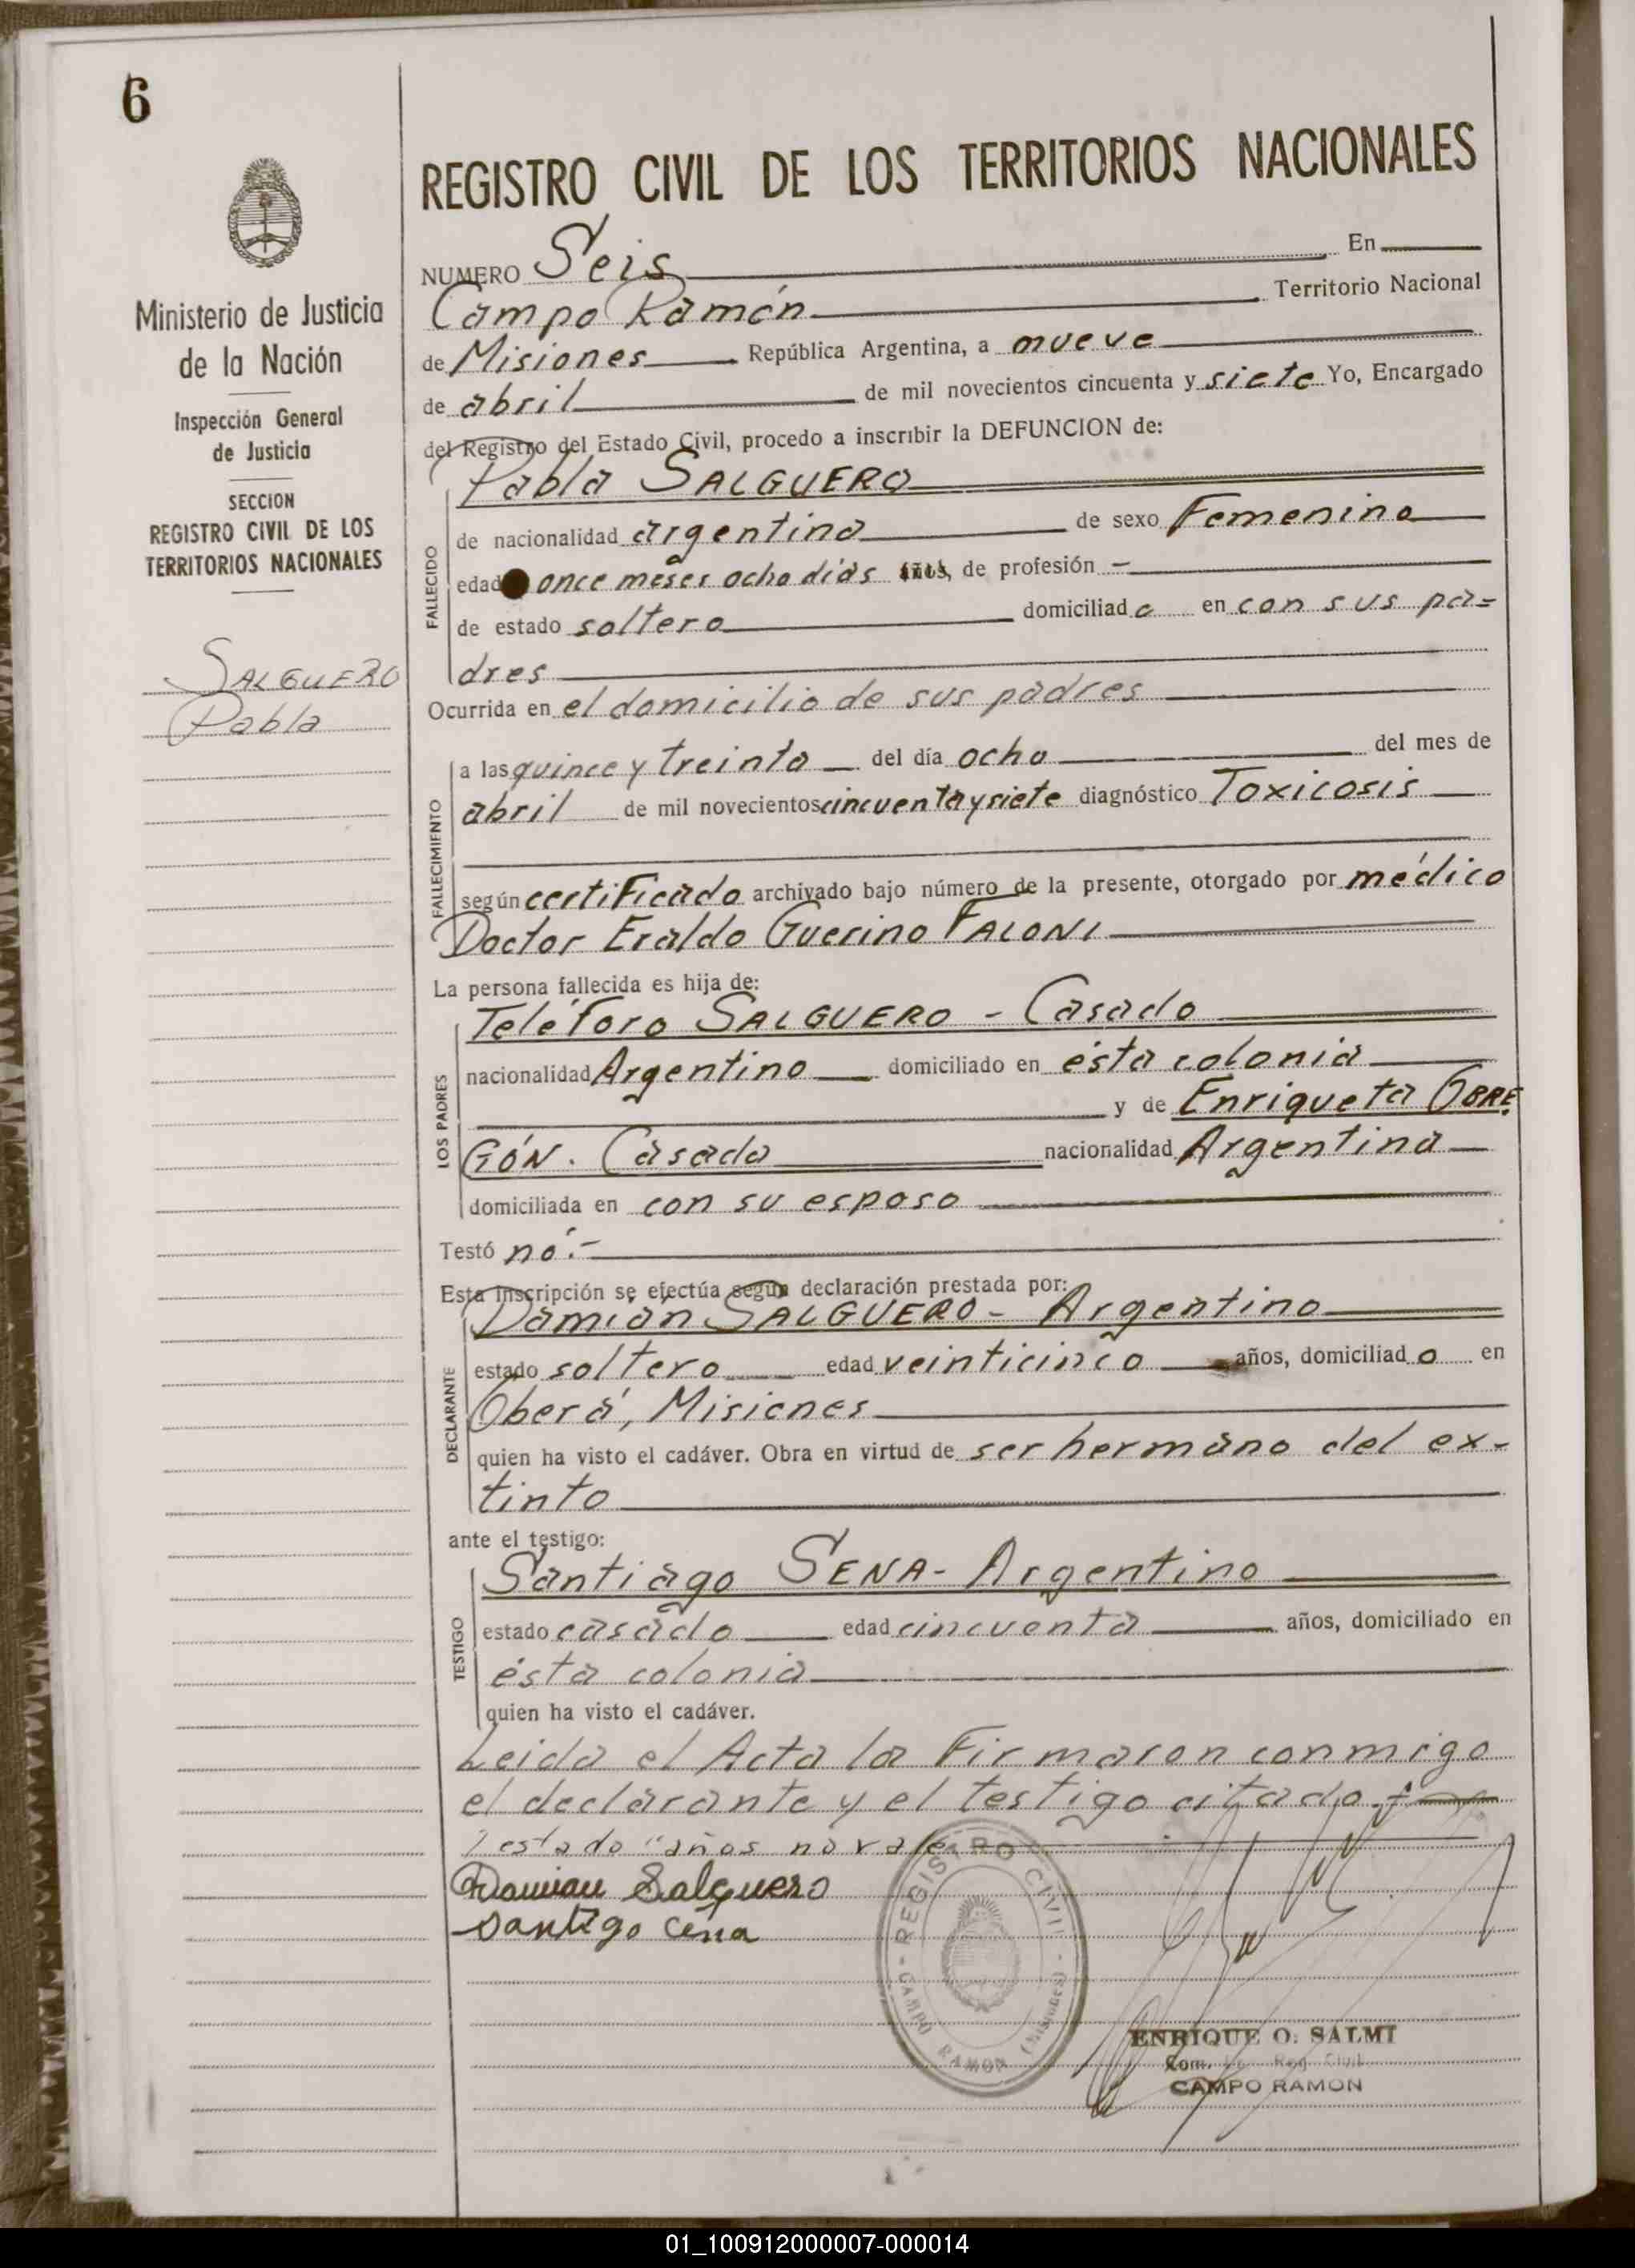 6
Ministerio de Justicia
de la Nación
Inspección General
de Justicia
SECCION
REGISTRO CIVIL DE LOS
TERRITORIOS NACIONALES
SALGUERO
Pabla
REGISTRO CIVIL DE LOS TERRITORIOS NACIONALES
NUMERO Seis En
Campo Ramón Territorio Nacional
de Misiones República Argentina, a nueve
de abril de mil novecientos cincuenta y siete Yo, Encargado
del Registro del Estado Civil, procedo a inscribir la DEFUNCION de:
FALLECIDO
Pabla SALGUERO
de nacionalidad argentina de sexo Femenino
edad once meses ocho días años, de profesión -
de estado soltera domiciliada en con sus pa=
dres
Ocurrida en el domicilio de sus padres
FALLECIMIENTO
a las quince y treinta del día ocho del mes de
abril de mil novecientos cincuenta y siete diagnóstico Toxicosis
según certificado archivado bajo número de la presente, otorgado por médico
Doctor Eraldo Guerino FALONI
La persona fallecida es hija de:
LOS PADRES
Teléforo SALGUERO - Casado
nacionalidad Argentino domiciliado en ésta colonia
y de Enriqueta OBRE
GÓN. Casada nacionalidad Argentina
domiciliada en con su esposo
Testó no.-
Esta inscripción se efectúa según declaración prestada por:
DECLARANTE
Damián SALGUERO - Argentino
estado soltero edad veinticinco años, domiciliado en
Oberá, Misiones
quien ha visto el cadáver. Obra en virtud de ser hermano del ex-
tinto
ante el testigo:
TESTIGO
Santiago SENA - Argentino
estado casado edad cincuenta años, domiciliado en
ésta colonia
quien ha visto el cadáver.
Leida el Acta la Firmaron conmigo
el declarante y el testigo citado.-
Testado "años no vale
Damian Salguero
Santigo Cena
REGISTRO CIVIL
CAMPO RAMON (Misiones)
ENRIQUE O. SALMI
Reg. Civil
CAMPO RAMON
01_100912000007-000014